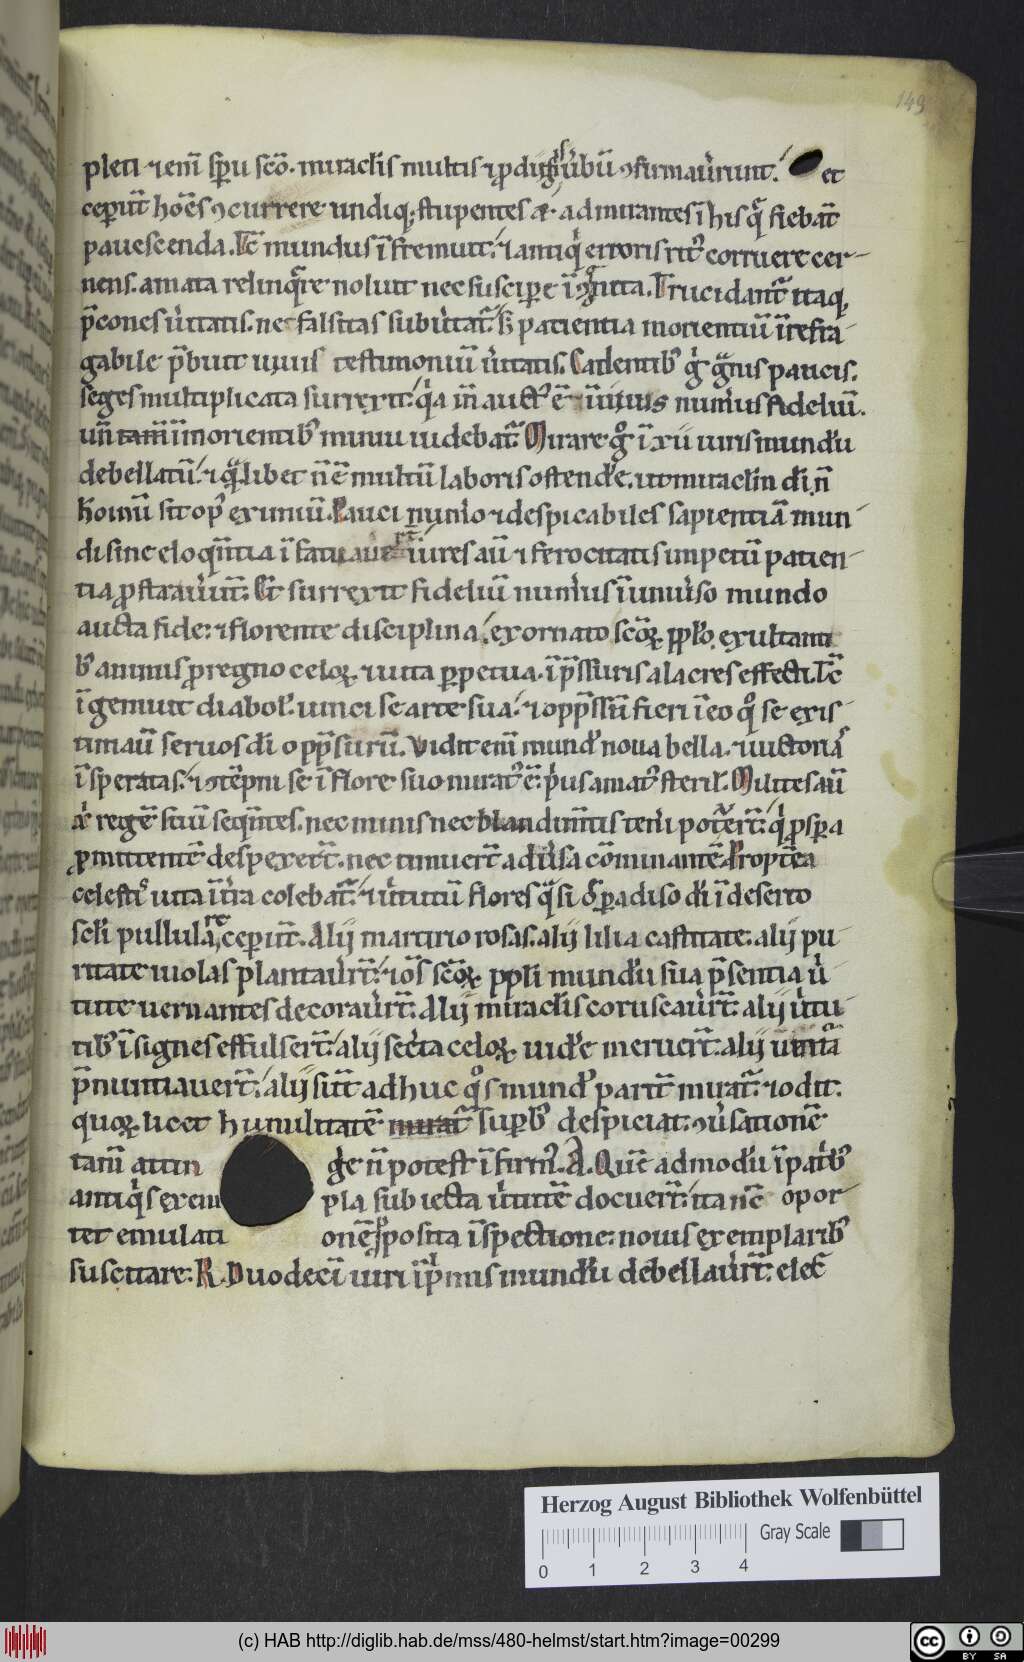 149
pleti ⁊ enī sp̄u sc̄o. miraclīs multis ⁊ prodigiis ūbū ꝯfirmaueͬrunt. et
ceperūt hoēs ꝯcurrere undiq; stupentes & admirantes ī his q̄ fiebāt
pauescenda. Tc̄ mundus īfremuit. ⁊ antiqͥ erroris ritꝰ corruere cer-
nens. amata relinq̄re noluit nec suscipe īcognita. Trucidant̄ itaq;
p̄cones ůitatis. ne falsitas subůtat̄. s; patientia morientiū irrefra-
gabile p̄buit uiuis testimoniū ůitatis. Cadentibꝰ gͥ gͣnis paucis.
seges multiplicata surrexit. qͥa īn auctꝰ ē numͥus fideliū.
un̄ tam̄ ī morientibꝰ minui uidebat̄. Mirare gͦ ī xii uiris mundū
debellatū. ⁊ qͣlibet n̄ ē multū laboris ostende. ut miraclm̄ dī. n̄
hoīnū sit opꝰ eximiū. Pauci numͥo ⁊ despicabiles sapientiā mun-
di sine eloqn̄tia ī uires aū ⁊ ferocitatis impetū patien-
tia ꝓstrauer̄t. Et surrexit fideliū numͥus ī uniůso mundo
aucta fide: ⁊ florente disciplina. exornato scōꝝ pplo. exultanti
bꝰ animis ꝓ regno celoꝝ. ⁊ uita ꝑpetua. ī p̄ssuris alacres effecti. Tc̄
īgemuit diabolꝰ uinci se arte sua. ⁊ opp̄ssū fieri ī eo qͦ se exis-
timauͥ seruos dī opp̄surū. Vidit enī mundꝰ noua bella. ⁊ uictoriā
īsperatas. ⁊ ꝯtēpni se ī flore suo miratꝰ ē. pͥus amatꝰ sterilꝰ. Milites aū
xͥ regē suū seqn̄tes. nec minis nec blandimn̄tis teneri poter̄t. qͥ ꝓspa
ꝓmittentē despexer̄t. nec timuer̄t adůsa cōminantē. Propt̄ea
celestꝰ uita ī t̄ra colebat̄. ⁊ ůtutū flores qͣsi ꝺ paradiso dī ī deserto
sclī pullulare ceperūt. Alij martirio rosas. alij lilia castitate. alij pu-
ritate uiolas plantauer̄t. ⁊ oīs scōꝝ ppli mundū sua p̄sentia ů-
tute uernantes decorauer̄t. Alij miraclīs coruscauer̄t. alij ůtu-
tibꝰ īsignes effulser̄t. alij secͣta celoꝝ uidͤe meruer̄t. alij uentura
p̄nuntiauer̄t. alij sūt adhuc qͦs mundꝰ partī mirat̄ ⁊ odit.
quoꝝ licet humilitatē mirat̄ supbꝰ despiciat. ꝯůsationē
tam̄ attin gͤe n̄ potest īfirmꝰ. A. Quē admodū ī patͥbꝰ
antiqͥs exem pla subiecta ůtutē docuer̄t. ita nc̄ opor-
tet emulati onē ꝓposita īspectione: nouis exemplaribꝰ
suscitare. R. Duodecī uiri īpͥmis mundū debellauer̄t. elec̄
Herzog August Bibliothek Wolfenbüttel
Gray Scale
0 1 2 3 4
(c) HAB http://diglib.hab.de/mss/480-helmst/start.htm?image=00299
cc BY SA